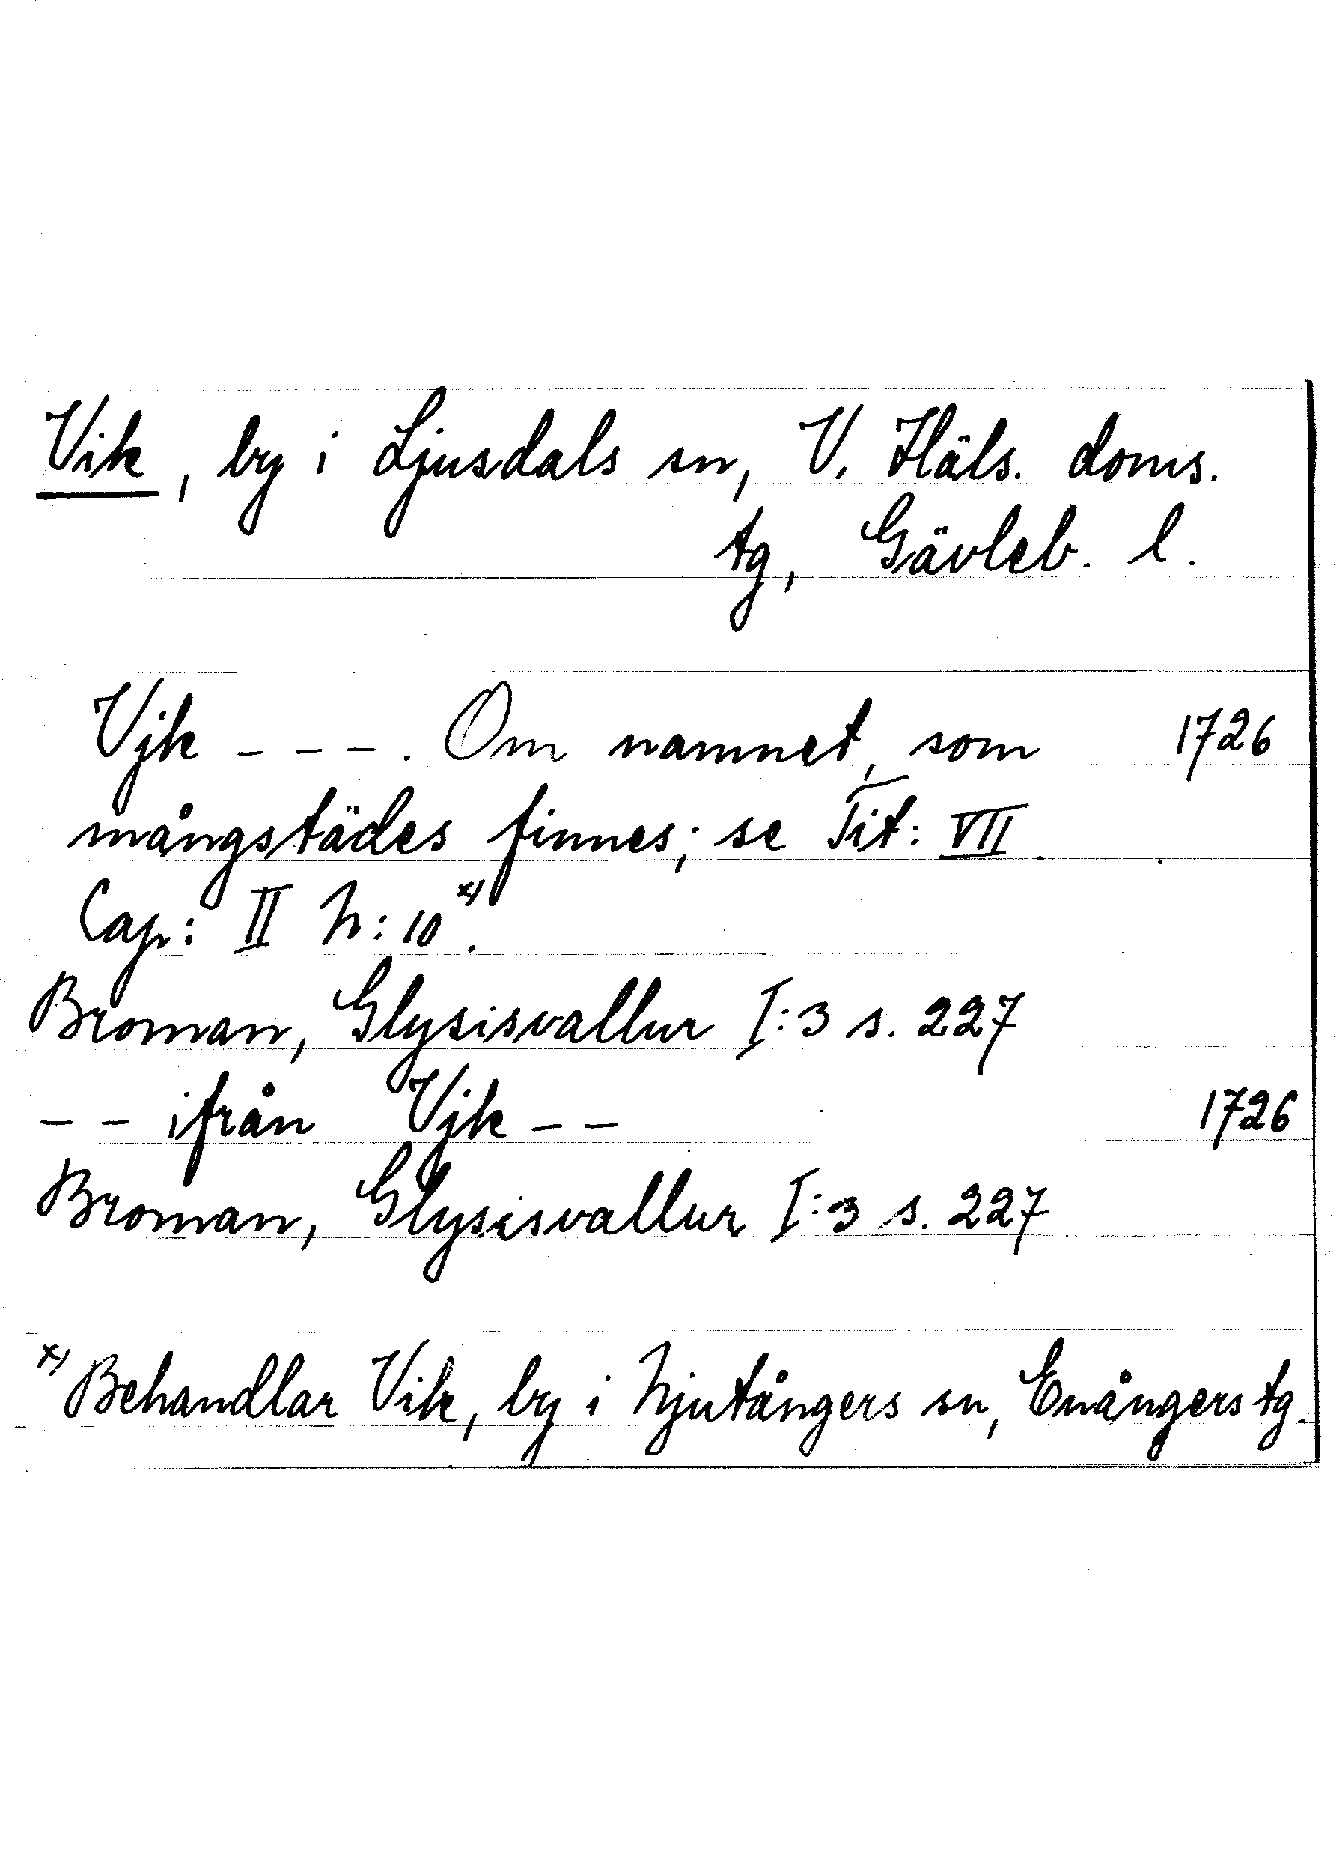 Vik, by i Ljusdals sn, V. Häls. doms.
tg, Gävleb. l.
Vjk - - - . Om namnet, som 1726
mångstädes finnes; se Tit: VII
Cap: II N: 10 x).
Broman, Glysisvallur I:3 s. 227
- - ifrån Vjk - - 1726
Broman, Glysisvallur I:3 s. 227
x) Behandlar Vik, by i Njutångers sn, Enångers tg.